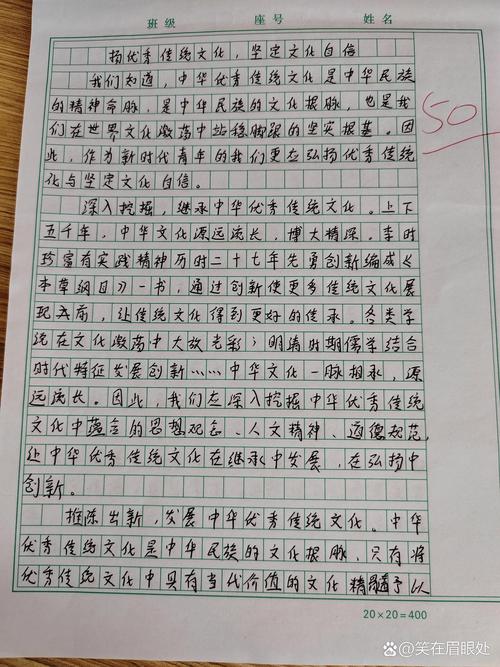 班级 座号 姓名
扬优秀传统文化，坚定文化自信
我们知道，中华优秀传统文化是中华民族
的精神命脉，是中华民族的文化根脉，也是我
们在世界文化激荡中站稳脚跟的坚实根基。因
此，作为新时代青年的我们更应弘扬优秀传统
化与坚定文化自信。
50
深入挖掘，继承中华优秀传统文化。上下
五千年，中华文化源远流长，博大精深。李时
珍富有实践精神历时二十七年先勇创新编成《
本草纲目》一书，通过创新使更多传统文化展
现在前，让传统文化得到更好的传承。各类学
说在文化激荡中大放光彩；明清时期儒学结合
时代特征发展创新……中华文化一脉相承，源
远流长。因此，我们应深入挖掘中华优秀传统
文化中蕴含的思想观念、人文精神、道德规范，
让中华优秀传统文化在继承中发展，在弘扬中
创新。
推陈出新，发展中华优秀传统文化。中华
优秀传统文化是中华民族的文化根脉，只有将
优秀传统文化中具有当代价值的文化精髓予以
20×20=400
百家号/笑在眉眼处